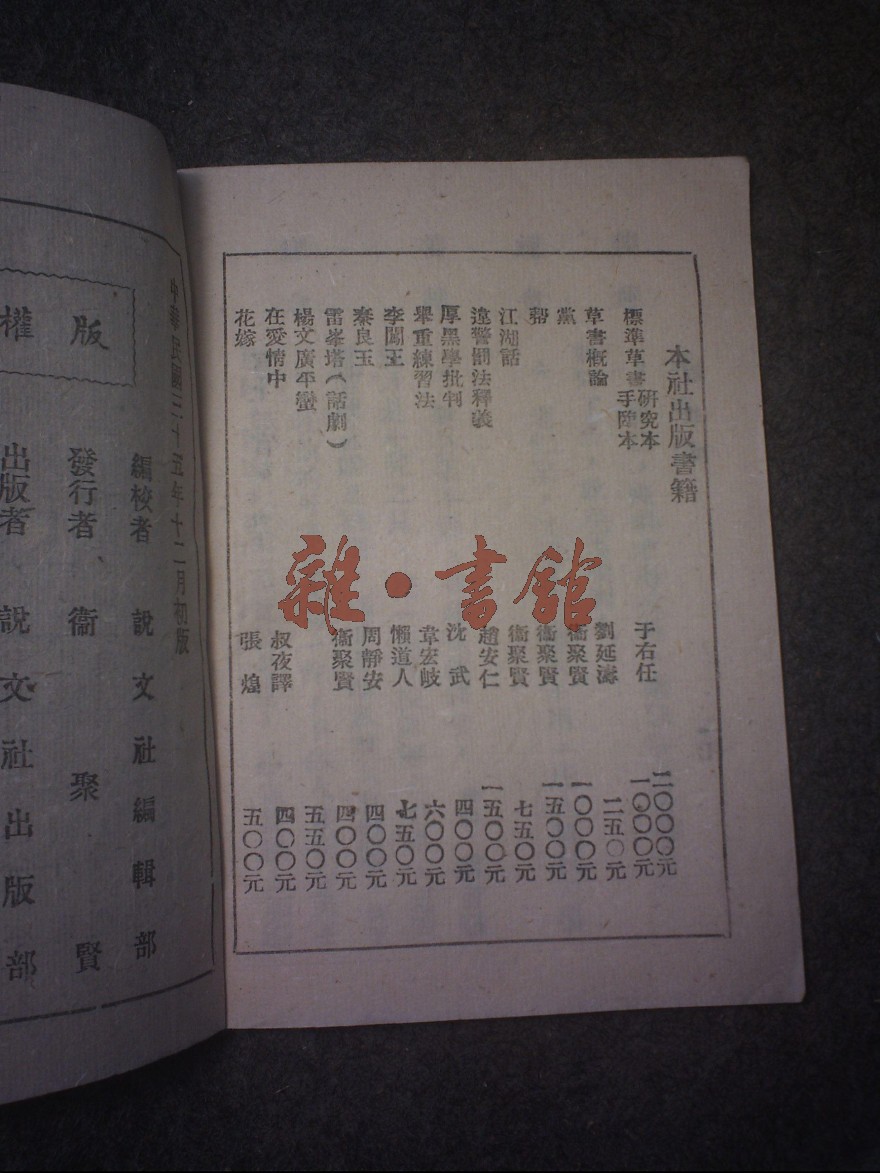 本社出版書籍
標準草書 研究本 于右任 二〇〇〇元
一〇〇〇元
草書概論 劉延濤 二五〇元
黨 衞聚賢 一〇〇〇元
帮 衞聚賢 一五〇〇元
江湖話 衞聚賢 七五〇元
違警罰法釋義 趙安仁 一五〇〇元
厚黑學批判 沈武 四〇〇元
舉重練習法 韋宏岐 六〇〇元
李闖王 懶道人 七五〇元
秦良玉 周靜安 四〇〇元
雷峯塔(話劇) 衞聚賢 四〇〇元
楊文廣平蠻 五五〇元
在愛情中 叔夜譯 四〇〇元
花嫁 張煌 五〇〇元
雜·書館
中華民國三十五年十二月初版
版權
編校者 說文社編輯部
發行者 衞聚賢
出版者 說文社出版部